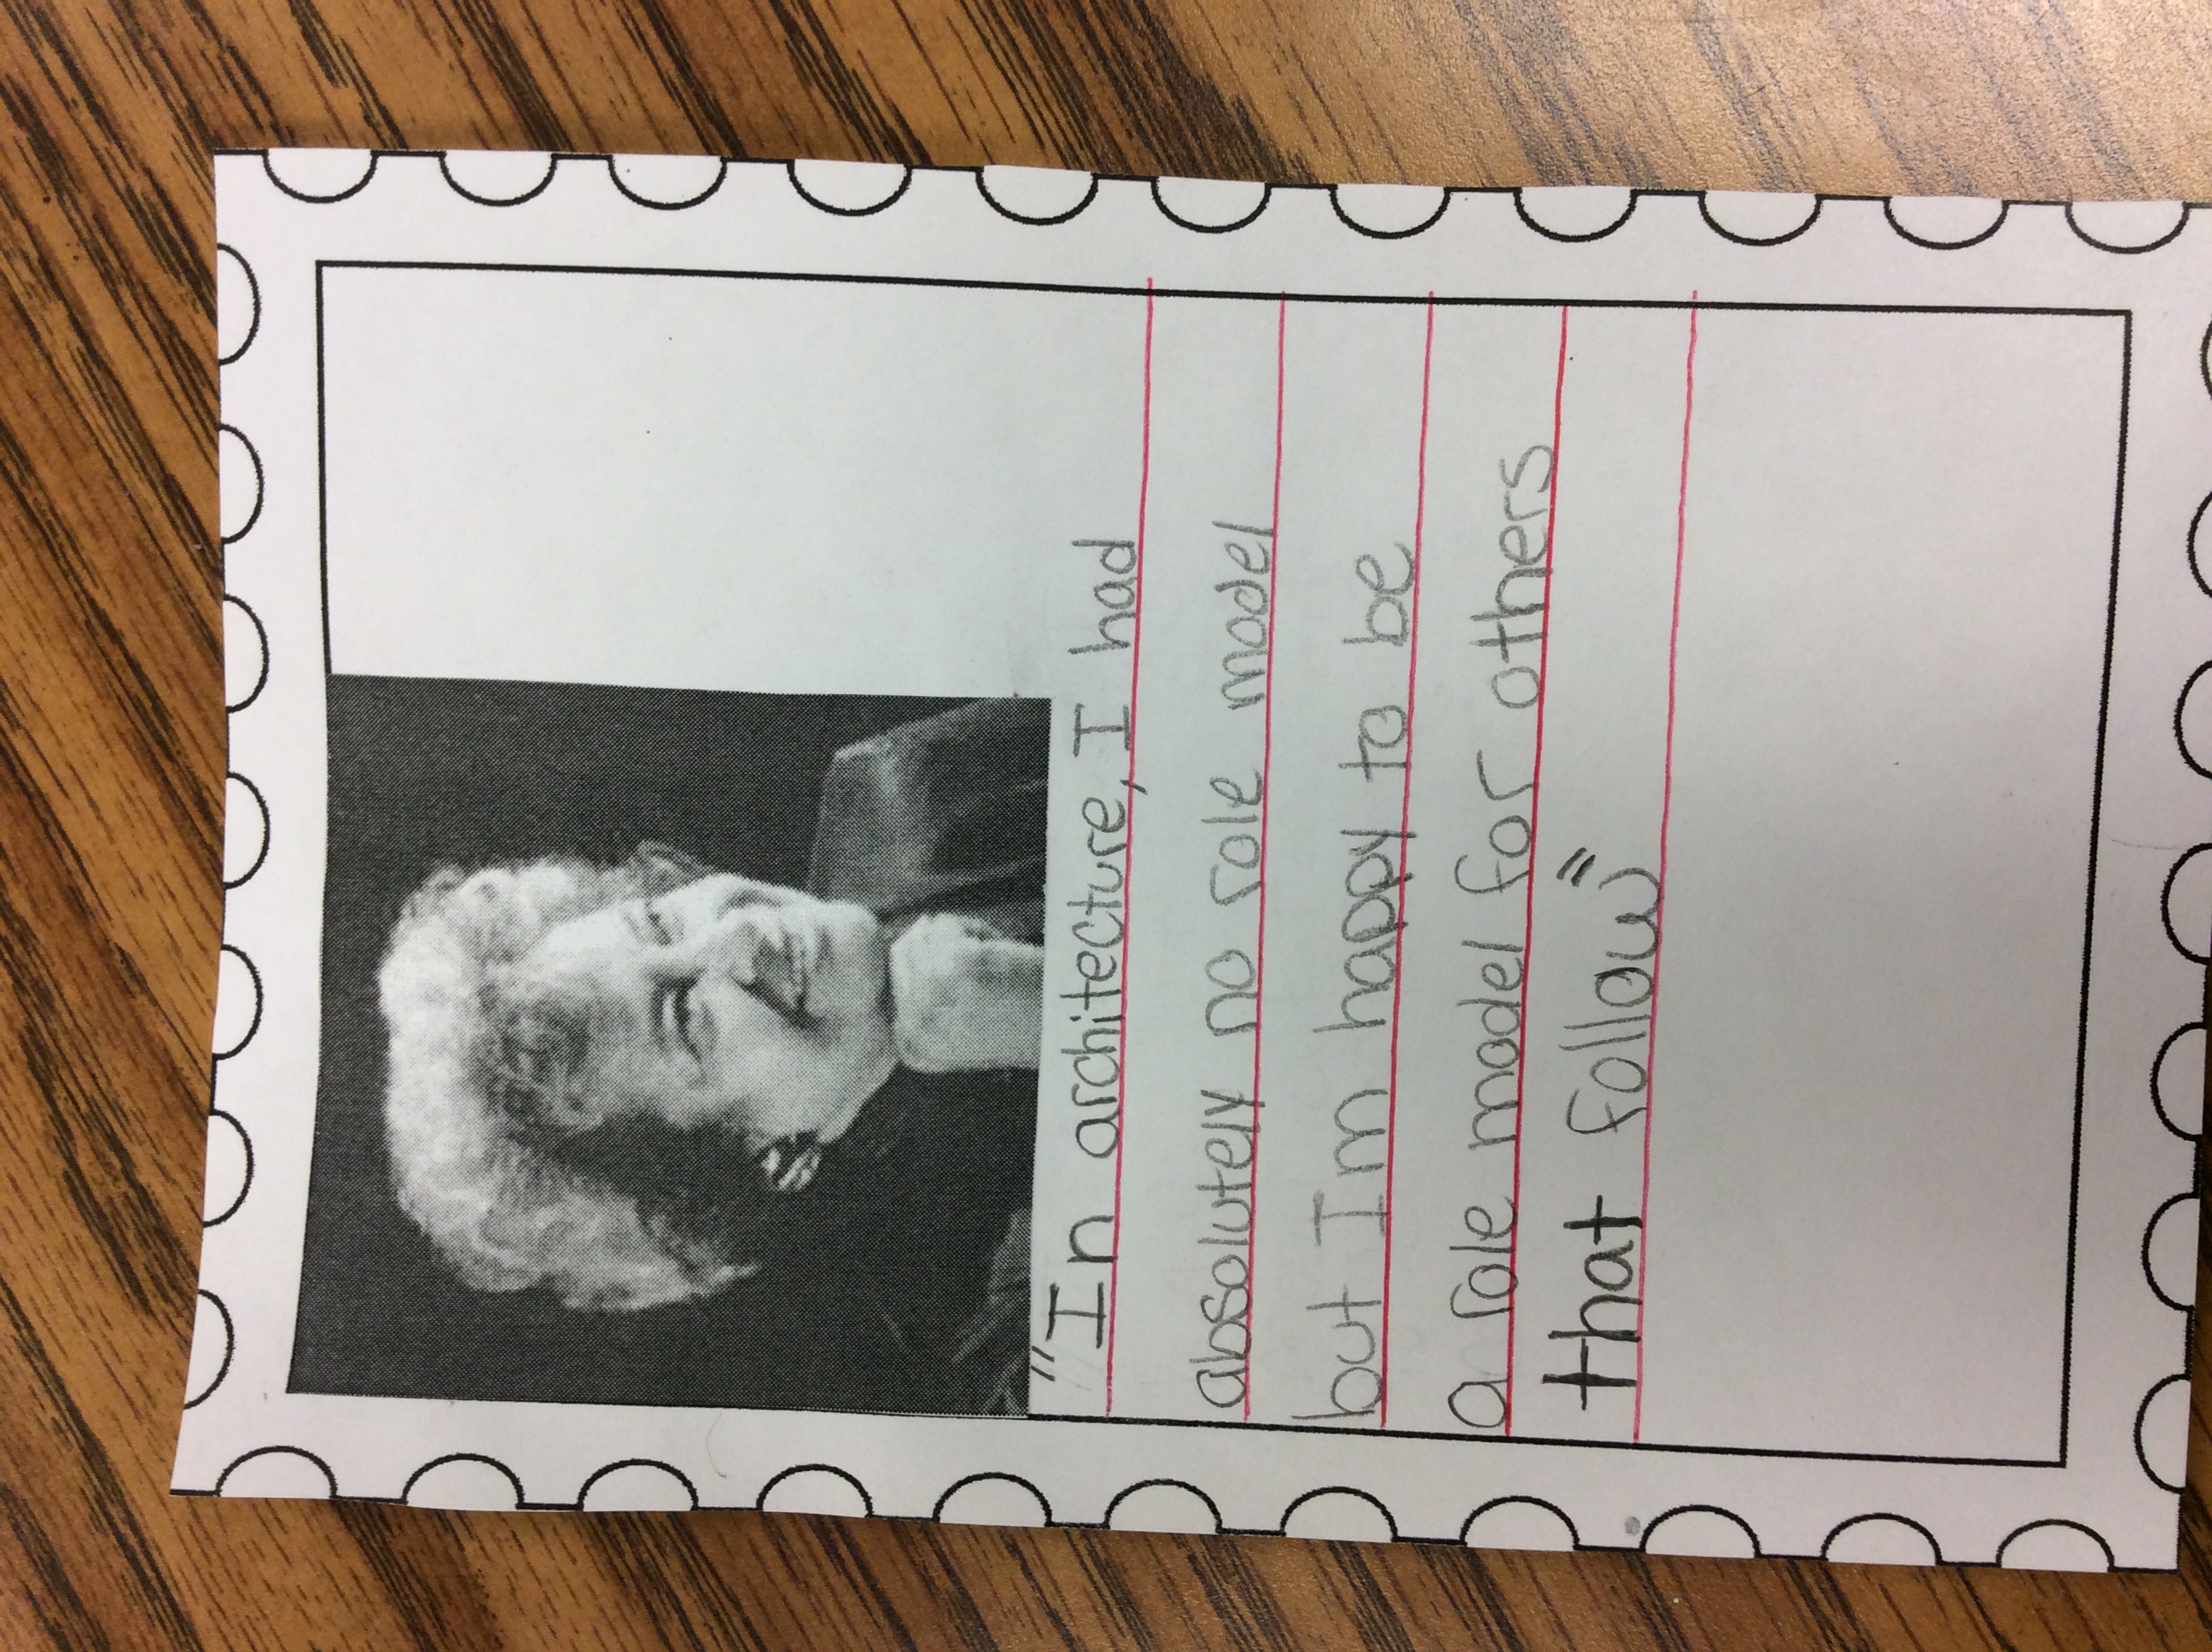 "In architecture, I had
absolutely no role model
but Im happy to be
a role model for others
that follow"